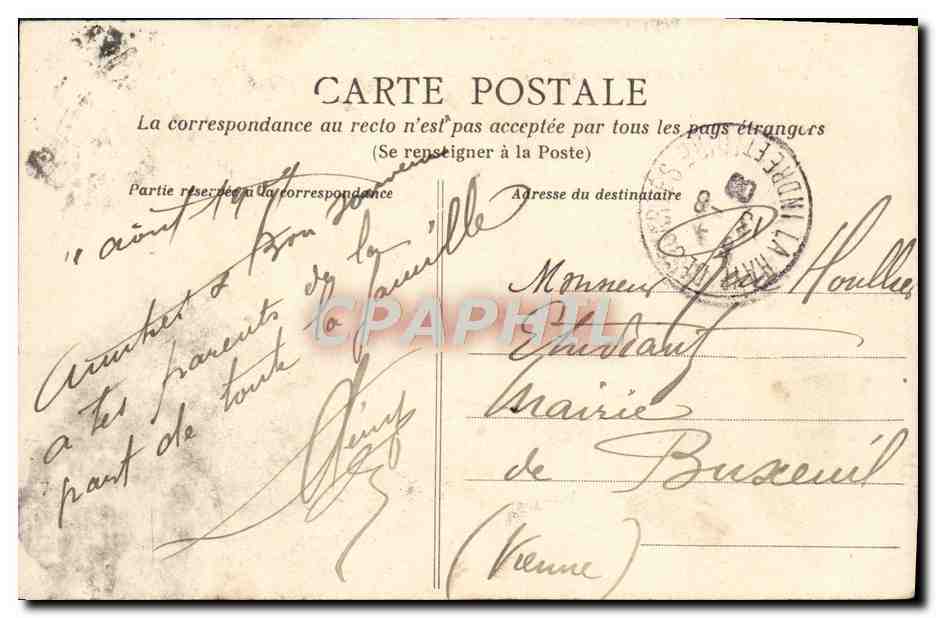 CARTE POSTALE
La correspondance au recto n'est pas acceptée par tous les pays étrangers
(Se renseigner à la Poste)
Partie reservée a la correspondance
Adresse du destinataire
août
Amitiés & bon souvenir
a tes parents de la
part de toute la famille
Monsieur Houllier
Etudiant
Mairie
de Buxeuil
(Vienne)
LA HAYE
INDRE ET
CPAPHIL